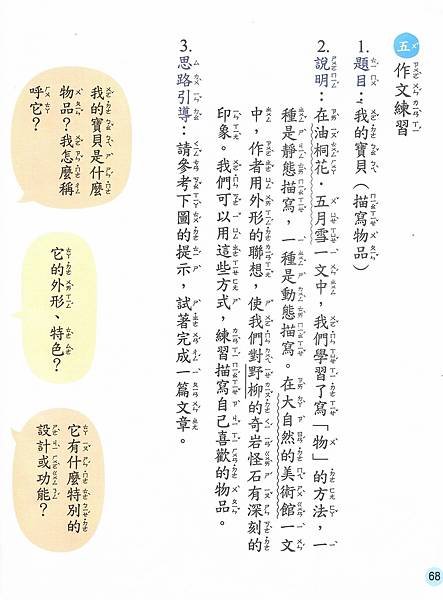 五 作文練習
1. 題目：我的寶貝（描寫物品）
2. 說明：在油桐花．五月雪一文中，我們學習了寫「物」的方法，一
種是靜態描寫，一種是動態描寫。在大自然的美術館一文
中，作者用外形的聯想，使我們對野柳的奇岩怪石有深刻的
印象。我們可以用這些方式，練習描寫自己喜歡的物品。
3. 思路引導：請參考下圖的提示，試著完成一篇文章。
我的寶貝是什麼
物品？我怎麼稱
呼它？
它的外形、特色？
它有什麼特別的
設計或功能？
68